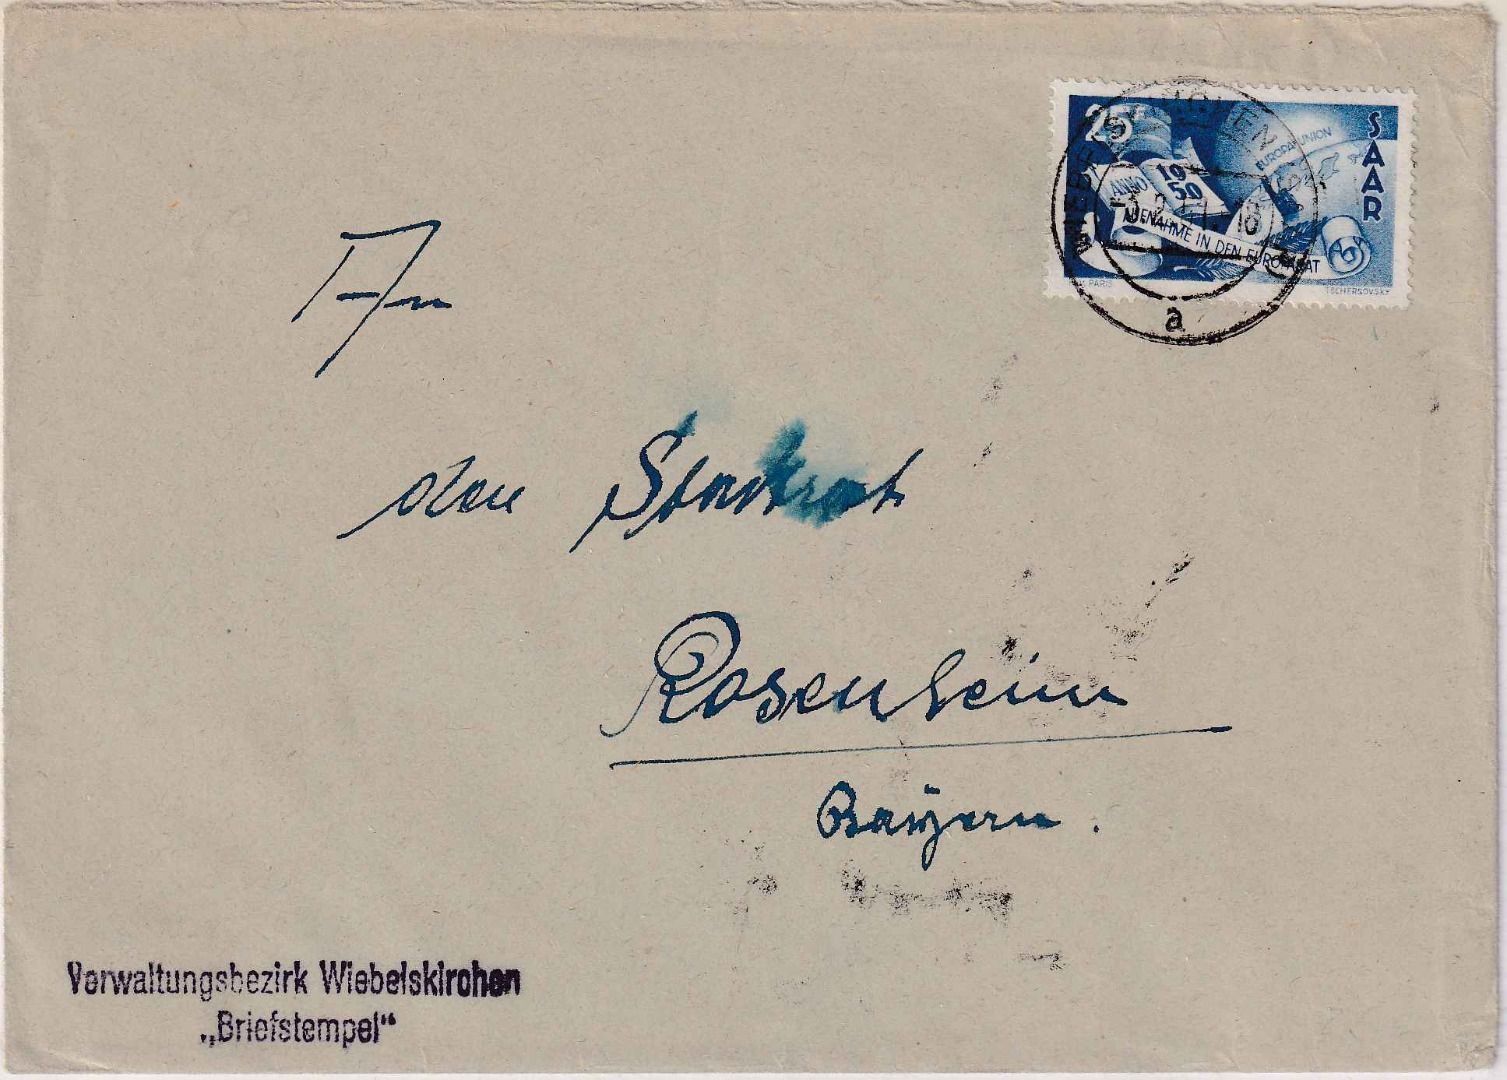 25
SAAR
EUROPA UNION
ANNO 1950
AUFNAHME IN DEN EUROPARAT
PARIS
TSCHERSOVSKY
WIEBELSKIRCHEN
18
a
An
den Stadtrat
Rosenheim
Bayern.
Verwaltungsbezirk Wiebelskirchen
„Briefstempel“